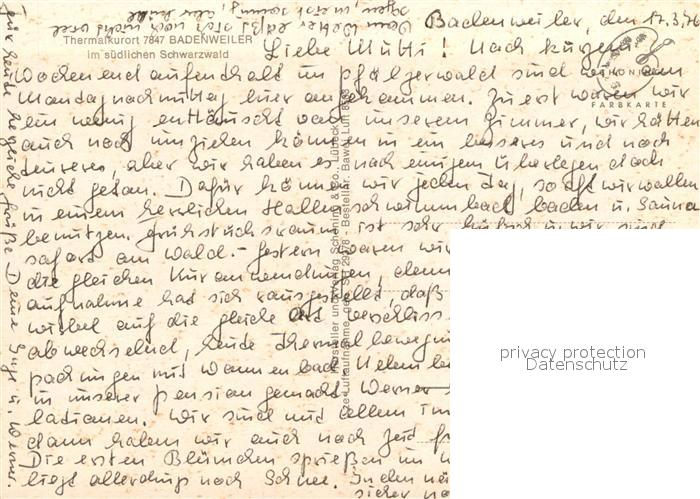 Thermalkurort 7847 BADENWEILER
im südlichen Schwarzwald
Badenweiler, den 17.3.76
Liebe Mutti! Nach kurzem
Wochenendaufenthalt im Pfälzerwald sind wir am
Montagnachmittag hier angekommen. Zuerst waren wir
ein wenig enttäuscht von unserem Zimmer, wir hätten
auch noch umziehen können in ein besseres und noch
teureres, aber wir haben es nach einigem Überlegen doch
nicht getan. Dafür können wir jeden Tag, so oft wir wollen
in einem herrlichen Hallenschwimmbad baden u. Sauna
benutzen. Frühstücksraum ist sehr hübsch u. wir sind
sofort am Wald. - Gestern waren wir
die gleichen Kuranwendungen, denn
aufnahme hat sich rausgestellt, daß
wirbel auf die gleiche Art verschliss
abwechselnd, heute Thermalbewegun
packungen mit Wannenbad. Neben
in unserer Pension gemacht. Werner
lationen. Wir sind mit allem im
dann haben wir auch noch Zeit
Die ersten Blümchen sprießen im
liegt allerdings noch Schnee. In den
sicher
Für heute herzliche Grüße Deine Inge u. Werner.
FARBKARTE
privacy protection
Datenschutz